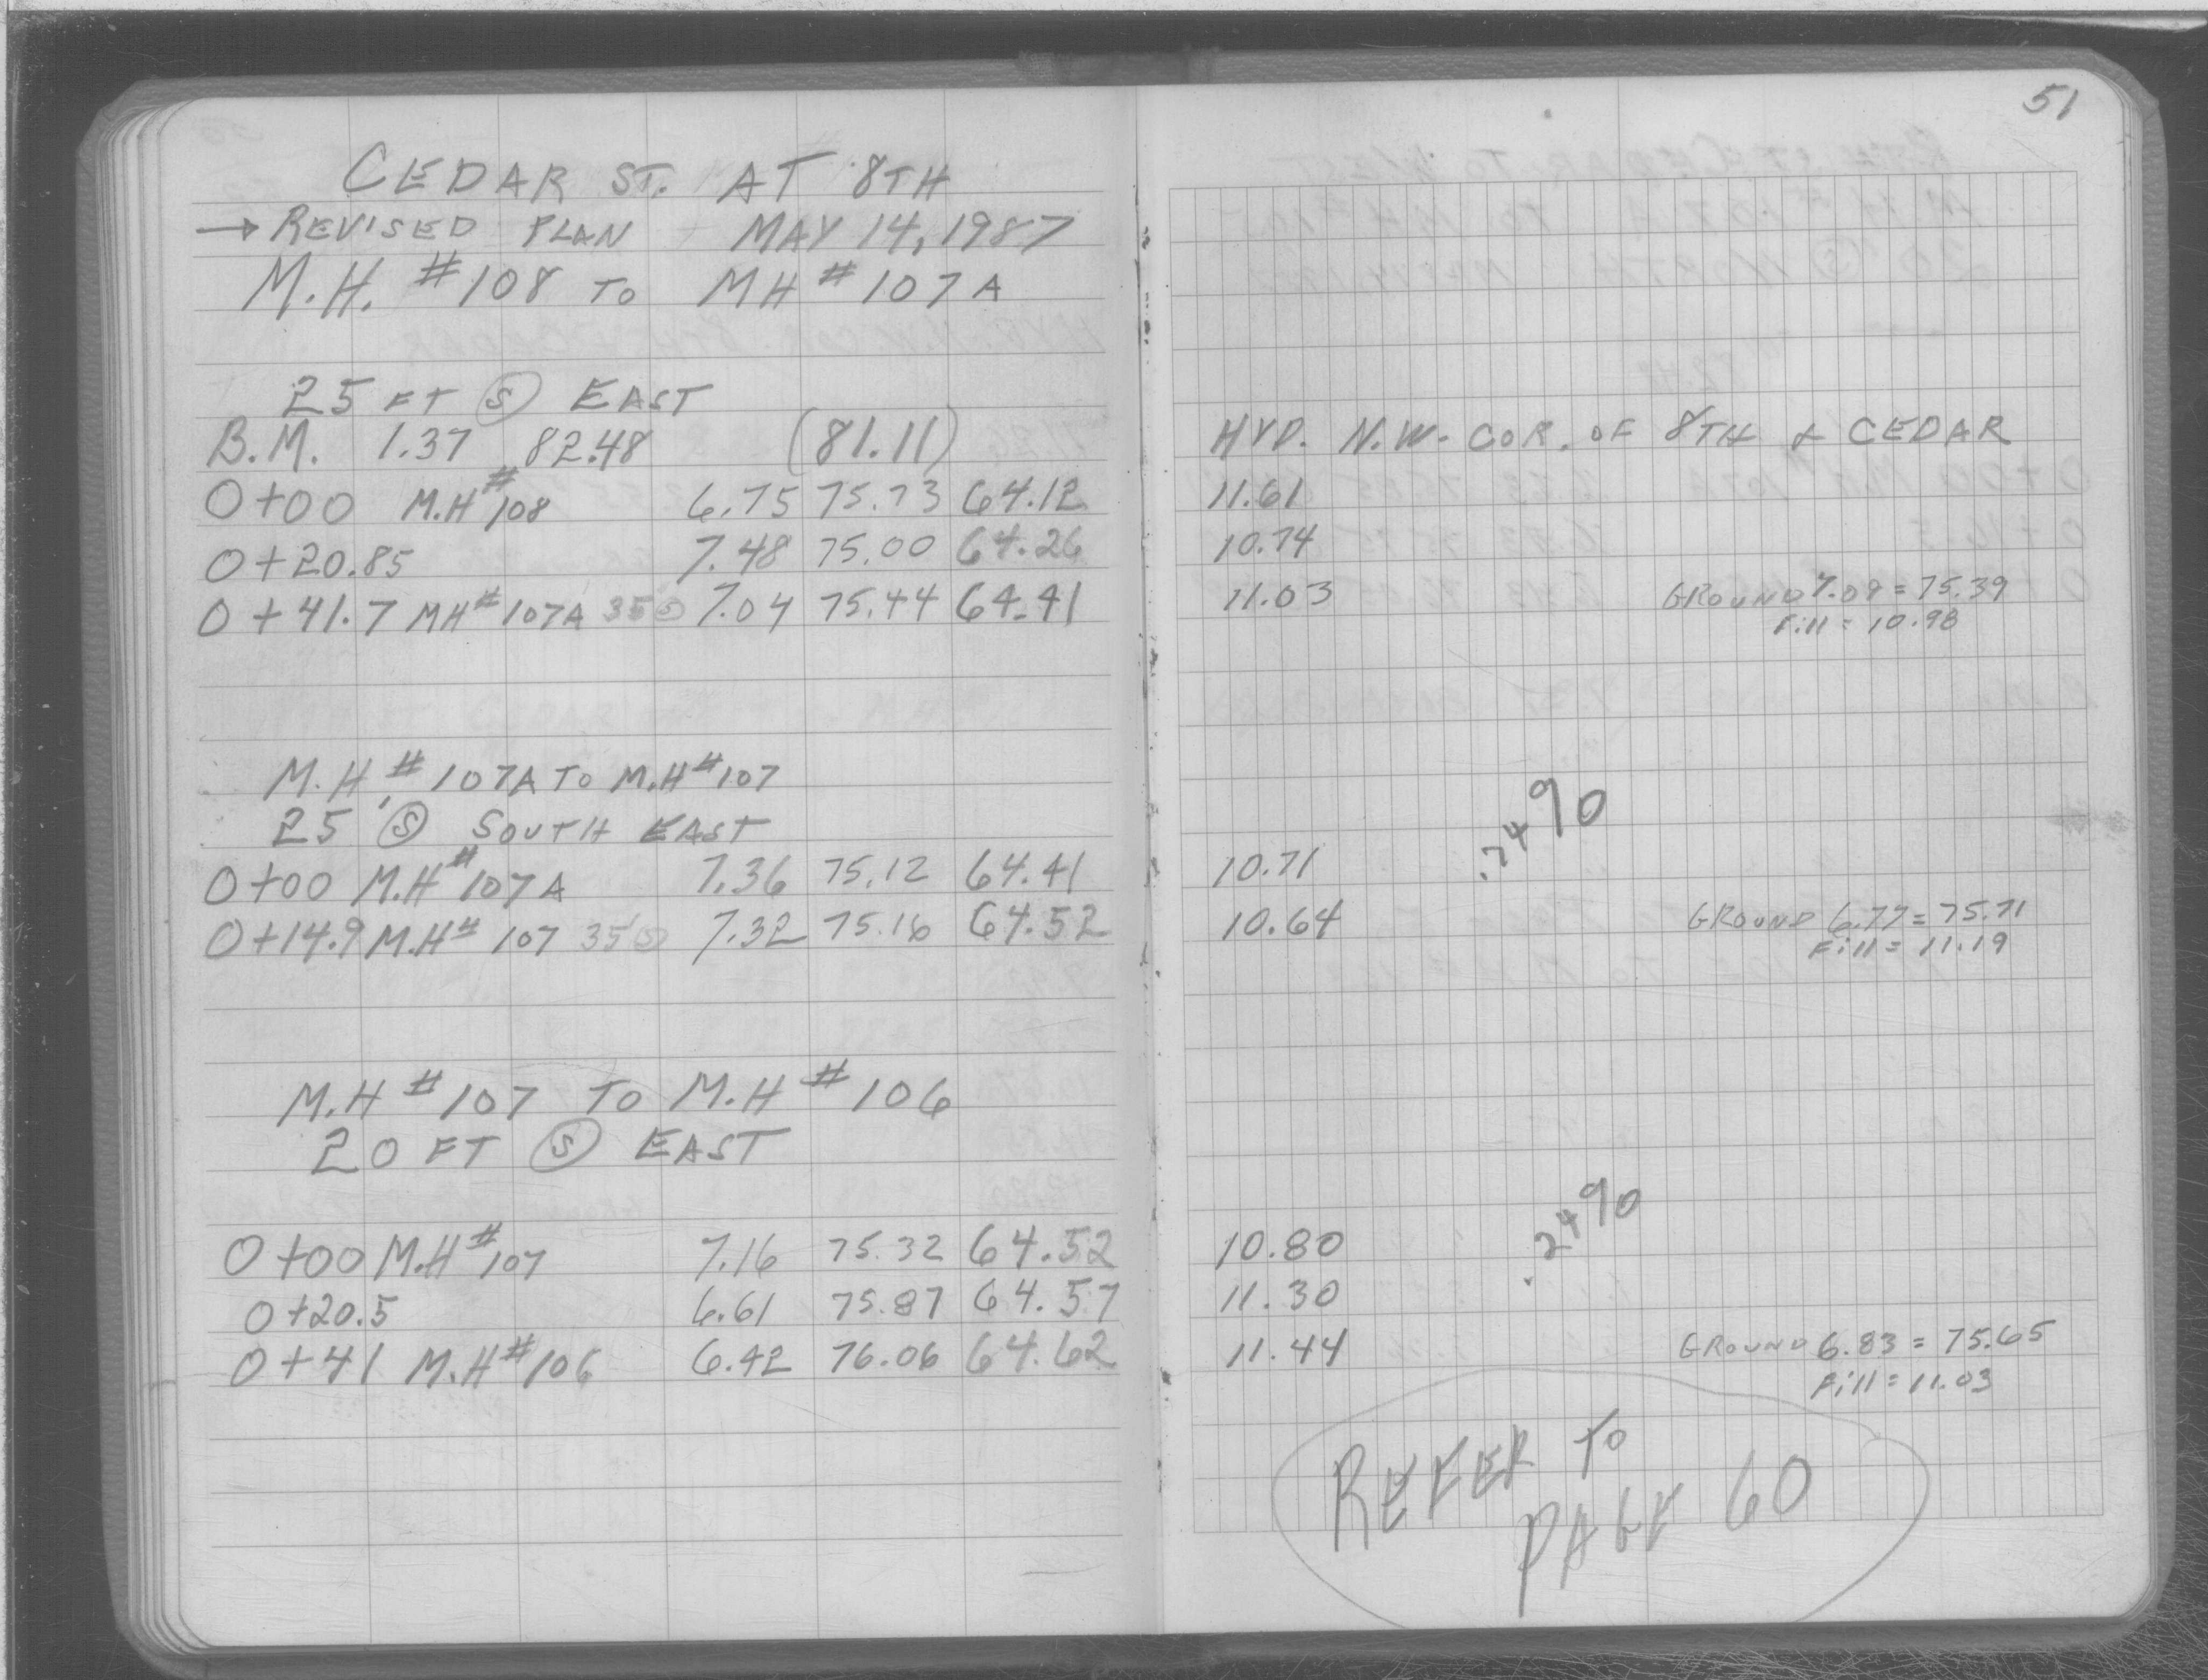 51
CEDAR ST. AT 8TH
→ REVISED PLAN MAY 14, 1987
M.H. #108 TO MH #107A
25 FT Ⓢ EAST
B.M. 1.37 82.48 (81.11) HYD. N.W. COR. OF 8TH & CEDAR
0+00 M.H #108 6.75 75.73 64.12 11.61
0+20.85 7.48 75.00 64.26 10.74
0+41.7 MH #107A 35 Ⓢ 7.04 75.44 64.41 11.03 GROUND 7.09 = 75.39
Fill = 10.98
M.H. #107A TO M.H #107
25 Ⓢ SOUTH EAST
0+00 M.H #107A 7.36 75.12 64.41 10.71
0+14.9 M.H # 107 35 Ⓢ 7.32 75.16 64.52 10.64 GROUND 6.77 = 75.71
Fill = 11.19
M.H #107 TO M.H #106
20 FT Ⓢ EAST
.24%
0+00 M.H #107 7.16 75.32 64.52 10.80
0+20.5 6.61 75.87 64.57 11.30
0+41 M.H #106 6.42 76.06 64.62 11.44 GROUND 6.83 = 75.65
Fill = 11.03
REFER TO
PAGE 60